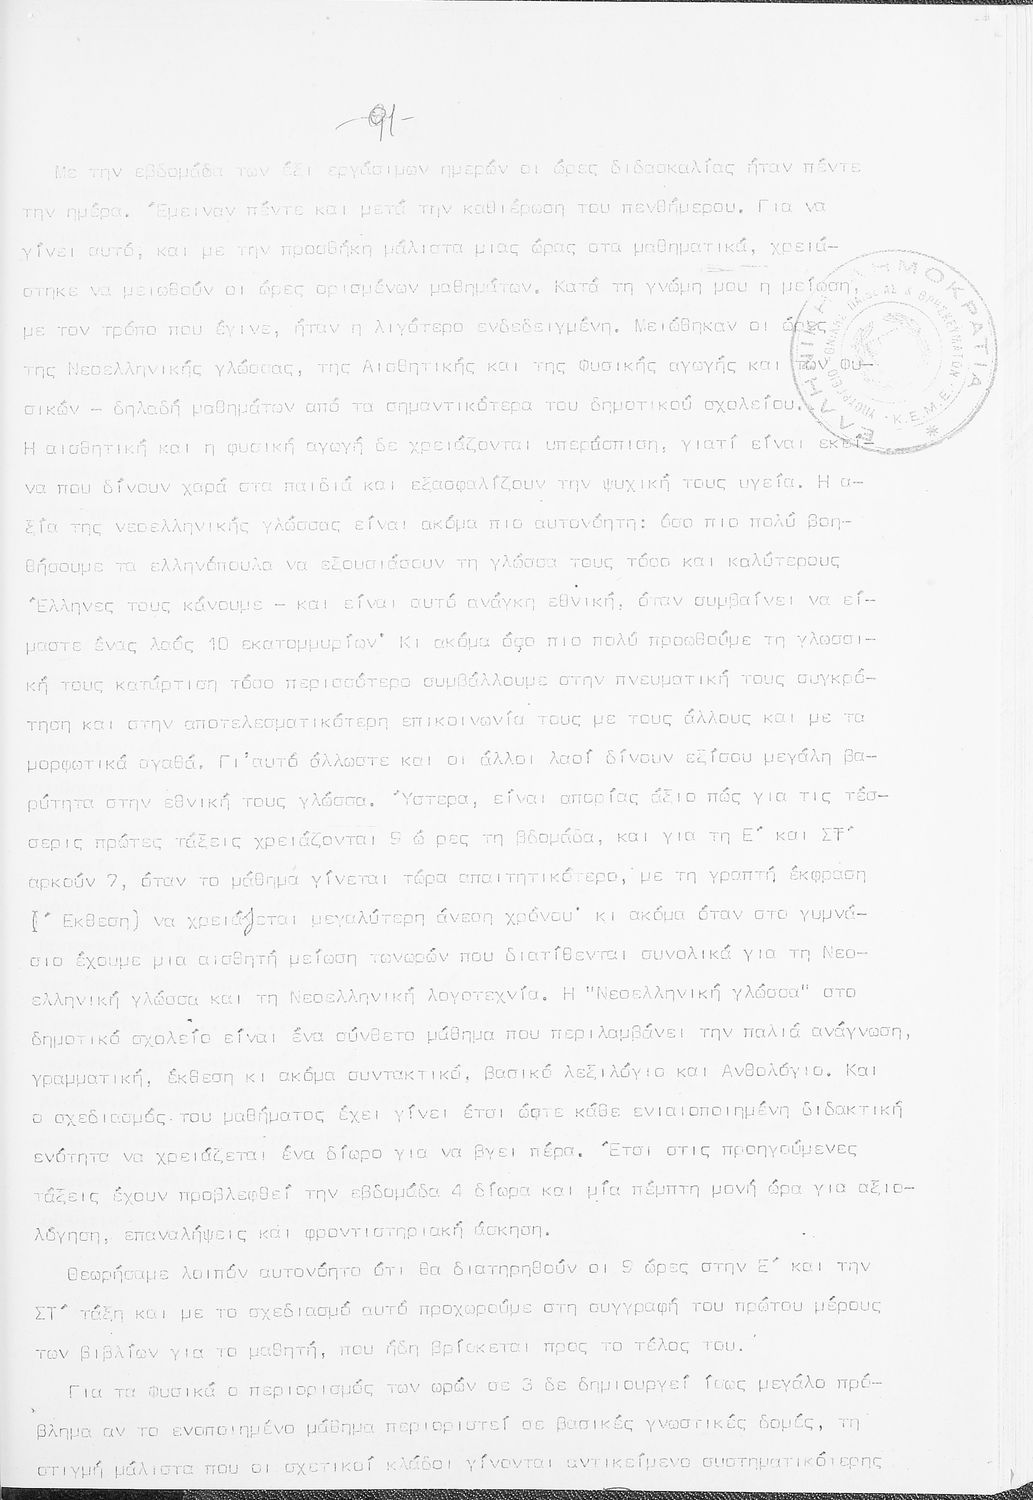 -91-
Με την εβδομάδα των έξι εργάσιμων ημερών οι ώρες διδασκαλίας ήταν πέντε
την ημέρα. Έμειναν πέντε και μετά την καθιέρωση του πενθήμερου. Για να
γίνει αυτό, και με την προσθήκη μάλιστα μιας ώρας στα μαθηματικά, χρειά-
στηκε να μειωθούν οι ώρες ορισμένων μαθημάτων. Κατά τη γνώμη μου η μείωση,
με τον τρόπο που έγινε, ήταν η λιγότερο ενδεδειγμένη. Μειώθηκαν οι ώρες
της Νεοελληνικής γλώσσας, της Αισθητικής και της Φυσικής αγωγής και των Φυ-
σικών - δηλαδή μαθημάτων από τα σημαντικότερα του δημοτικού σχολείου.
Η αισθητική και η φυσική αγωγή δε χρειάζονται υπεράσπιση, γιατί είναι εκεί-
να που δίνουν χαρά στα παιδιά και εξασφαλίζουν την ψυχική τους υγεία. Η α-
ξία της νεοελληνικής γλώσσας είναι ακόμα πιο αυτονόητη: όσο πιο πολύ βοη-
θήσουμε τα ελληνόπουλα να εξουσιάσουν τη γλώσσα τους τόσο και καλύτερους
Έλληνες τους κάνουμε - και είναι αυτό ανάγκη εθνική, όταν συμβαίνει να εί-
μαστε ένας λαός 10 εκατομμυρίων· Κι ακόμα όσο πιο πολύ προωθούμε τη γλωσσι-
κή τους κατάρτιση τόσο περισσότερο συμβάλλουμε στην πνευματική τους συγκρό-
τηση και στην αποτελεσματικότερη επικοινωνία τους με τους άλλους και με τα
μορφωτικά αγαθά. Γι'αυτό άλλωστε και οι άλλοι λαοί δίνουν εξίσου μεγάλη βα-
ρύτητα στην εθνική τους γλώσσα. Ύστερα, είναι απορίας άξιο πώς για τις τέσ-
σερις πρώτες τάξεις χρειάζονται 9 ώ ρες τη βδομάδα, και για τη Ε΄ και ΣΤ΄
αρκούν 7, όταν το μάθημα γίνεται τώρα απαιτητικότερο, με τη γραπτή έκφραση
(΄Εκθεση) να χρειάζεται μεγαλύτερη άνεση χρόνου· κι ακόμα όταν στο γυμνά-
σιο έχουμε μια αισθητή μείωση τωνωρών που διατίθενται συνολικά για τη Νεο-
ελληνική γλώσσα και τη Νεοελληνική λογοτεχνία. Η "Νεοελληνική γλώσσα" στο
δημοτικό σχολείο είναι ένα σύνθετο μάθημα που περιλαμβάνει την παλιά ανάγνωση,
γραμματική, έκθεση κι ακόμα συντακτικό, βασικό λεξιλόγιο και Ανθολόγιο. Και
ο σχεδιασμός του μαθήματος έχει γίνει έτσι ώστε κάθε ενιαιοποιημένη διδακτική
ενότητα να χρειάζεται ένα δίωρο για να βγει πέρα. Έτσι στις προηγούμενες
τάξεις έχουν προβλεφθεί την εβδομάδα 4 δίωρα και μία πέμπτη μονή ώρα για αξιο-
λόγηση, επαναλήψεις και φροντιστηριακή άσκηση.
Θεωρήσαμε λοιπόν αυτονόητο ότι θα διατηρηθούν οι 9 ώρες στην Ε΄ και την
ΣΤ΄ τάξη και με το σχεδιασμό αυτό προχωρούμε στη συγγραφή του πρώτου μέρους
των βιβλίων για το μαθητή, που ήδη βρίσκεται προς το τέλος του.
Για τα Φυσικά ο περιορισμός των ωρών σε 3 δε δημιουργεί ίσως μεγάλο πρό-
βλημα αν το ενοποιημένο μάθημα περιοριστεί σε βασικές γνωστικές δομές, τη
στιγμή μάλιστα που οι σχετικοί κλάδοι γίνονται αντικείμενο συστηματικότερης
ΕΛΛΗΝΙΚΗ ΔΗΜΟΚΡΑΤΙΑ
ΥΠΟΥΡΓΕΙΟ ΕΘΝΙΚΗΣ ΠΑΙΔΕΙΑΣ & ΘΡΗΣΚΕΥΜΑΤΩΝ
Κ.Ε.Μ.Ε.